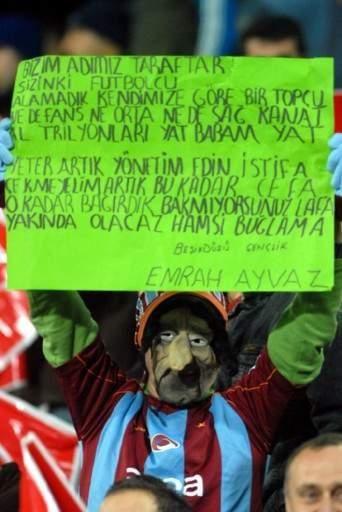 BİZİM ADIMIZ TARAFTAR
SİZİNKİ FUTBOLCU
ALAMADIK KENDİMİZE GÖRE BİR TOPÇU
NE DEFANS NE ORTA NE DE SAĞ KANAT
AL TRİLYONLARI YAT BABAM YAT
YETER ARTIK YÖNETİM EDİN İSTİFA
ÇEKMEYELİM ARTIK BU KADAR CEFA
O KADAR BAĞIRDIK BAKMIYORSUNUZ LAFA
YAKINDA OLACAZ HAMSİ BUĞLAMA
BEŞİKDÜZÜ GENÇLİK
EMRAH AYVAZ